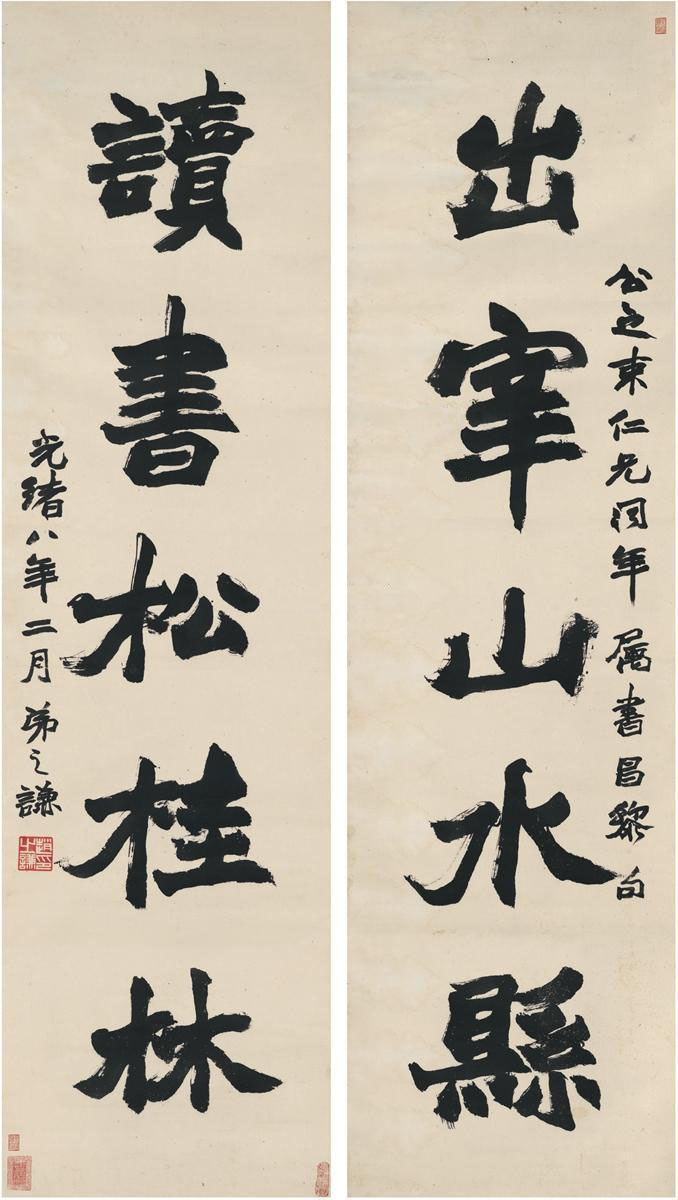 公之東仁兄同年屬書昌黎句
出宰山水縣
讀書松桂林
光緒八年二月弟之謙
趙之謙印